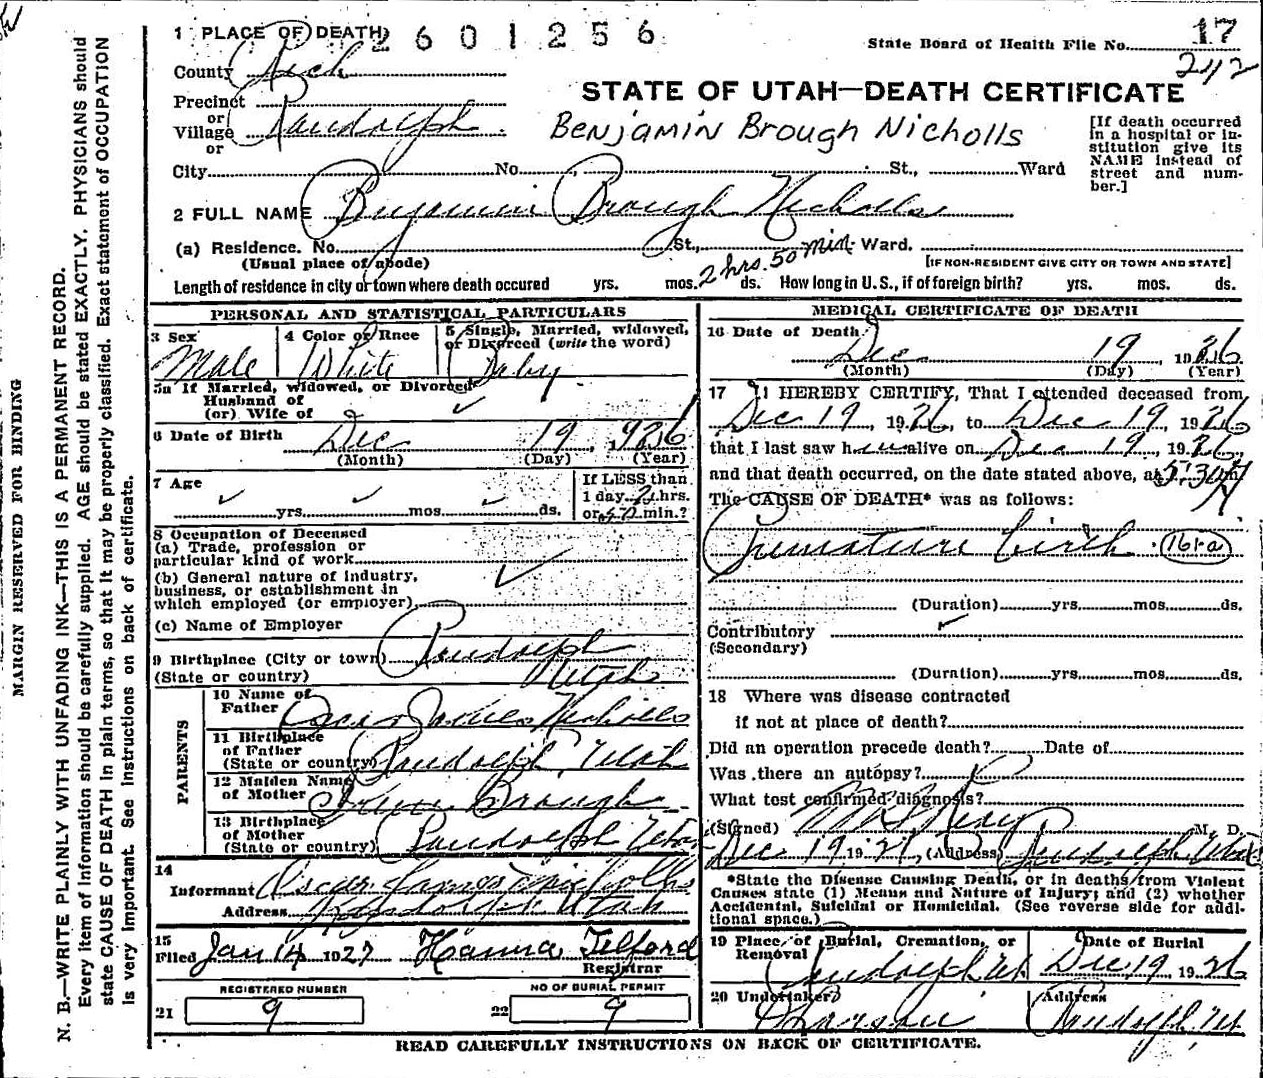 1 PLACE OF DEATH 2601256
State Board of Health File No. 17
242
County Rich
Precinct
or
Village Randolph
or
STATE OF UTAH—DEATH CERTIFICATE
Benjamin Brough Nicholls
[If death occurred
in a hospital or in-
stitution give its
NAME instead of
street and num-
ber.]
City No. St., Ward
2 FULL NAME Benjamin Brough Nicholls
(a) Residence. No. St., Ward.
(Usual place of abode)
[IF NON-RESIDENT GIVE CITY OR TOWN AND STATE]
2 hrs. 50 min.
Length of residence in city or town where death occured yrs. mos. ds. How long in U.S., if of foreign birth? yrs. mos. ds.
PERSONAL AND STATISTICAL PARTICULARS
3 Sex
Male
4 Color or Race
White
5 Single, Married, widowed,
or Divorced (write the word)
Baby
5a If Married, widowed, or Divorced
Husband of
(or) Wife of
6 Date of Birth Dec 19 1926
(Month) (Day) (Year)
7 Age
yrs. mos. ds.
If LESS than
1 day 2 hrs.
or 50 min.?
8 Occupation of Deceased
(a) Trade, profession or
particular kind of work
(b) General nature of industry,
business, or establishment in
which employed (or employer)
(c) Name of Employer
9 Birthplace (City or town) Randolph
(State or country) Utah
PARENTS
10 Name of
Father Oscar James Nicholls
11 Birthplace
of Father
(State or country) Randolph, Utah
12 Maiden Name
of Mother Brough
13 Birthplace
of Mother
(State or country) Randolph Utah
14
Informant Oscar James Nicholls
Address Randolph Utah
15
Filed Jan 14 1927 Hanna Telford
Registrar
REGISTERED NUMBER
21 9
NO OF BURIAL PERMIT
22 9
MEDICAL CERTIFICATE OF DEATH
16 Date of Death
Dec 19, 1926
(Month) (Day) (Year)
17 I HEREBY CERTIFY, That I attended deceased from
Dec 19, 1926, to Dec 19, 1926
that I last saw him alive on Dec 19, 1926,
and that death occurred, on the date stated above, at 5:30
The CAUSE OF DEATH* was as follows:
Premature birth. 161-a
(Duration) yrs. mos. ds.
Contributory
(Secondary)
(Duration) yrs. mos. ds.
18 Where was disease contracted
if not at place of death?
Did an operation precede death? Date of
Was there an autopsy?
What test confirmed diagnosis?
(Signed) M. D.
Dec 19 1926, (Address) Randolph Utah
*State the Disease Causing Death, or in deaths from Violent
Causes state (1) Means and Nature of Injury; and (2) whether
Accidental, Suicidal or Homicidal. (See reverse side for addi-
tional space.)
19 Place of Burial, Cremation, or
Removal
Randolph Ut
Date of Burial
Dec 19 1926
20 Undertaker
Address
Randolph, Ut
READ CAREFULLY INSTRUCTIONS ON BACK OF CERTIFICATE.
MARGIN RESERVED FOR BINDING
N. B.—WRITE PLAINLY WITH UNFADING INK—THIS IS A PERMANENT RECORD.
Every item of information should be carefully supplied. AGE should be stated EXACTLY. PHYSICIANS should
state CAUSE OF DEATH in plain terms, so that it may be properly classified. Exact statement of OCCUPATION
is very important. See instructions on back of certificate.